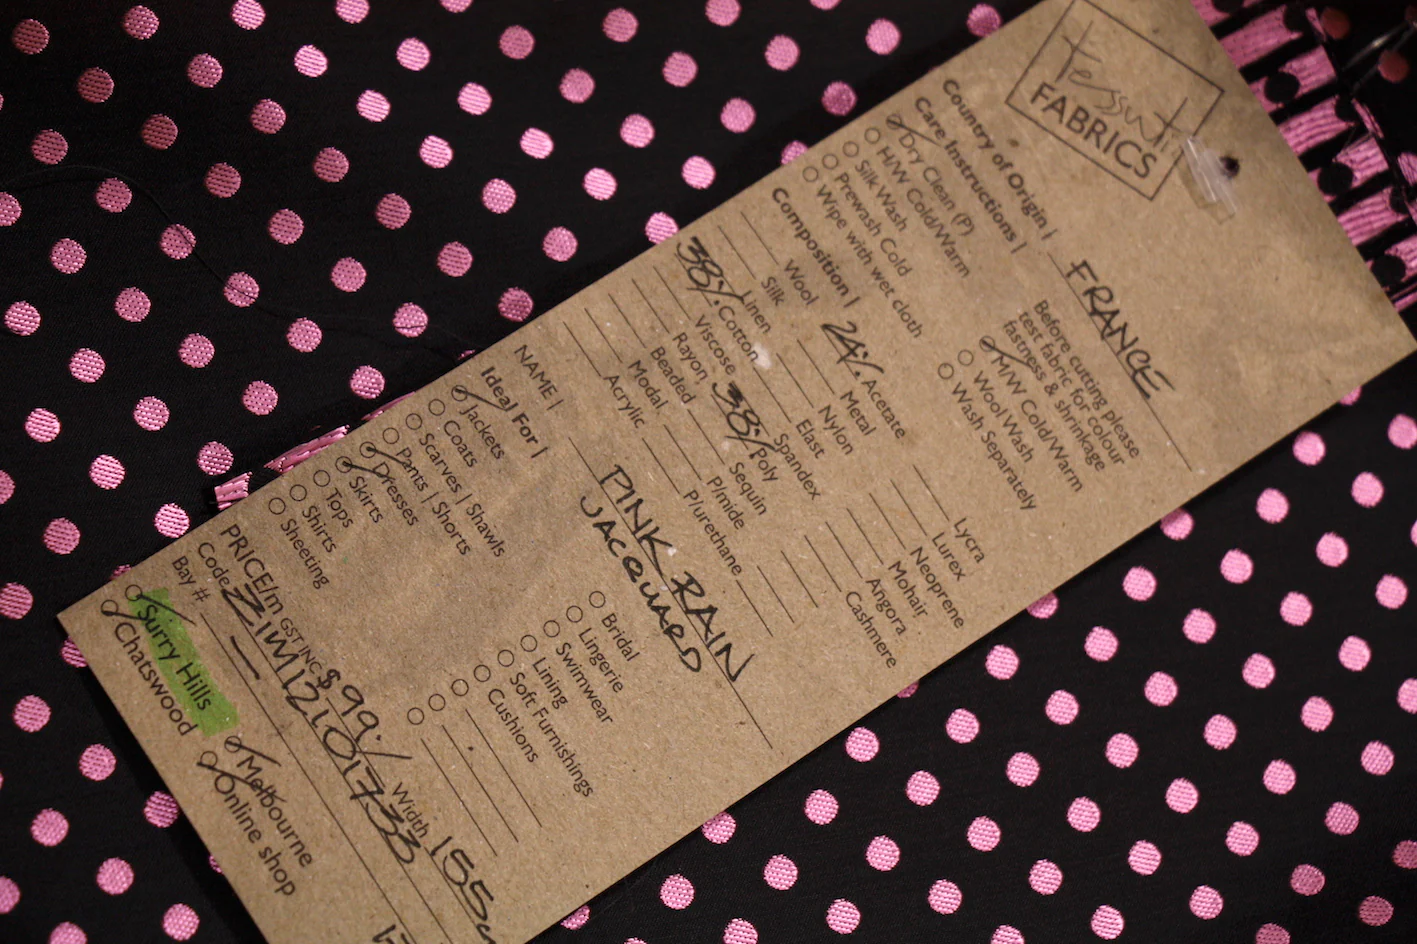 Tessuti
FABRICS
Country of Origin | FRANCE
Care Instructions |
Dry Clean (P)
H/W Cold/Warm
Silk Wash
Prewash Cold
Wipe with wet cloth
Before cutting please
test fabric for colour
fastness & shrinkage
M/W Cold/Warm
Wool Wash
Wash Separately
Composition |
Wool
Silk
Linen
38% Cotton
Viscose
Rayon
Beaded
Modal
Acrylic
24% Acetate
Metal
Nylon
Elast
Spandex
38% Poly
Sequin
P/mide
P/urethane
Lycra
Lurex
Neoprene
Mohair
Angora
Cashmere
NAME | PINK RAIN
JACQUARD
Ideal For |
Jackets
Coats
Scarves | Shawls
Pants | Shorts
Dresses
Skirts
Tops
Shirts
Sheeting
Bridal
Lingerie
Swimwear
Lining
Soft Furnishings
Cushions
PRICE/m GST INC $99./ Width 155
Code ZIM12101733
Bay # —
Surry Hills
Chatswood
Melbourne
Online shop